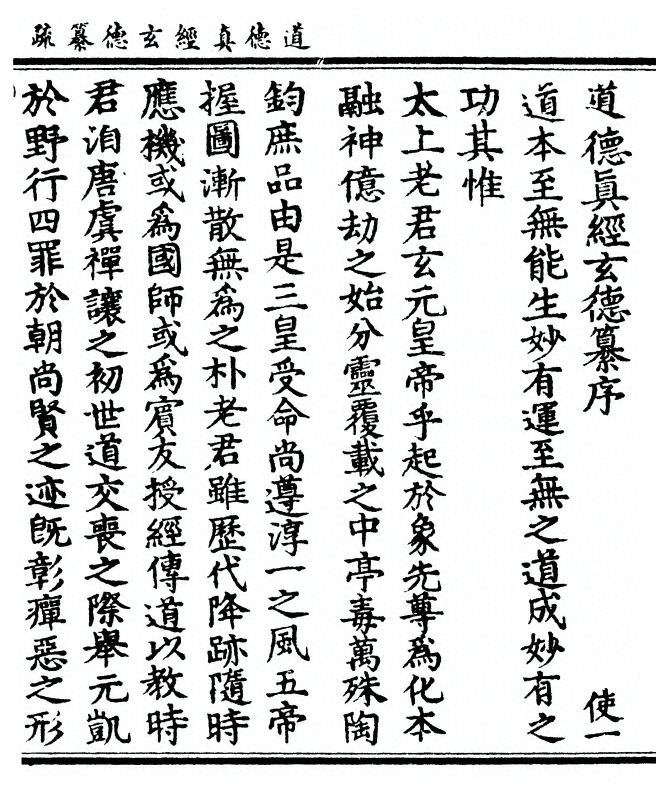 道德真經玄德纂疏
道德眞經玄德纂序 使一
道本至無能生妙有運至無之道成妙有之
功其惟
太上老君玄元皇帝乎起於象先尊爲化本
融神億劫之始分靈覆載之中亭毒萬殊陶
鈞庶品由是三皇受命尚遵淳一之風五帝
握圖漸散無爲之朴老君雖歷代降跡隨時
應機或爲國師或爲賓友授經傳道以教時
君洎唐虞禪讓之初世道交喪之際舉元凱
於野行四罪於朝尚賢之迹旣彰癉惡之形